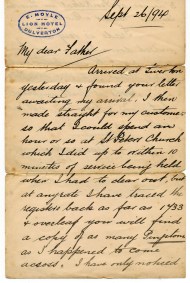 E. MOYLE
LION HOTEL
CULVERTON
Sept 26/94
My dear Father
Arrived at Tiverton
yesterday & found your letter
awaiting my arrival. I then
made straight for my customer
so that I could spend an
hour or so at St Peters Church
which I did up to within 10
minutes of service being held
when I had to clear out, but
at any rate I have traced the
registers back as far as 1733
& overleaf you will find
a copy of as many
as I happened to come
across. I have only noticed